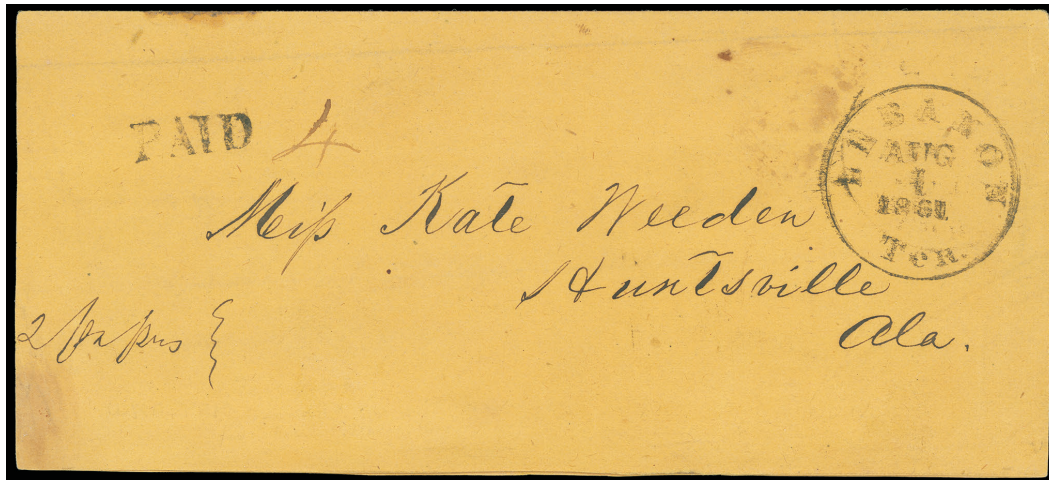 PAID 4
LEBANON
AUG
1
1861
TeN.
Miſs Kate Weeden
Huntsville
Ala.
2 papers